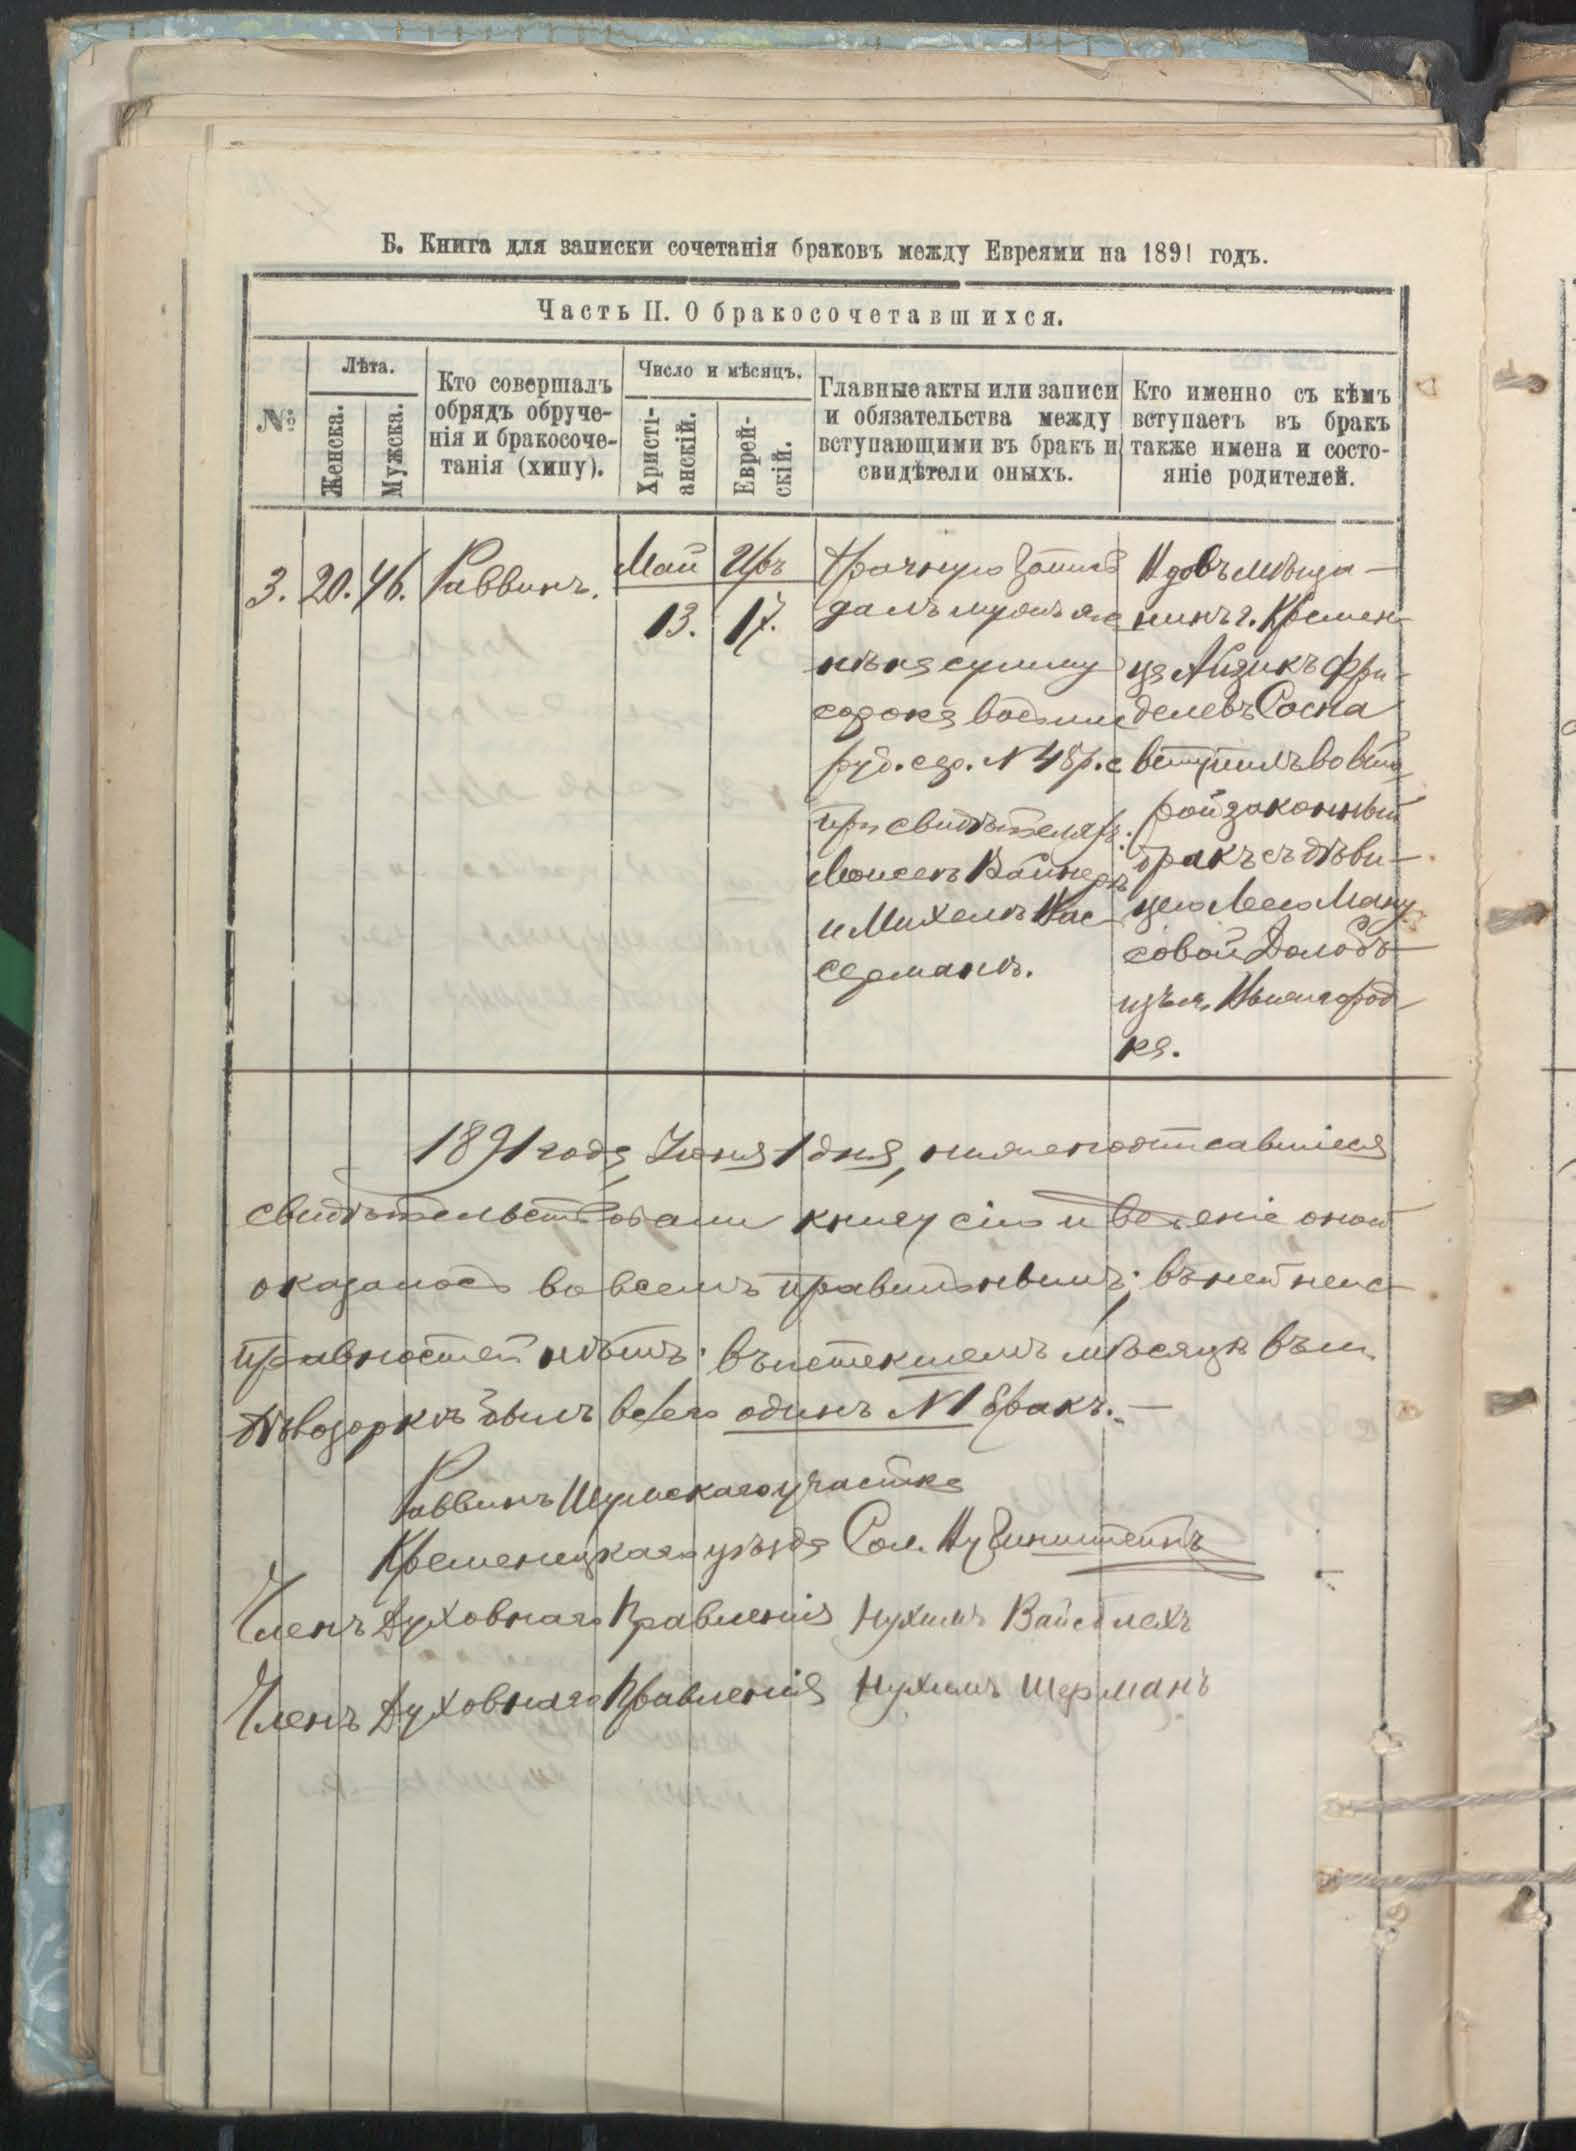 Б. Книга для записки сочетанія браковъ между Евреями на 1891 годъ.
Часть II. О бракосочетавшихся.
№
Лѣта.
Женска.
Мужска.
Кто совершалъ
обрядъ обруче-
нія и бракосоче-
танія (хипу).
Число и мѣсяцъ.
Христі-
анскій.
Еврей-
скій.
Главные акты или записи
и обязательства между
вступающими въ бракъ и
свидѣтели оныхъ.
Кто именно съ кѣмъ
вступаетъ въ бракъ
также имена и состо-
яніе родителей.
3.
20.
46.
Раввинъ.
Май
13.
Иръ
17.
Брачную запись
далъ мужъ же
нѣ на сумму
сорокъ восемь
руб. сер. N 48 р. с
при свидѣтеляхъ:
Моисеѣ Вайнеръ
и Михелѣ Вас-
серманъ.
Вдовъ мѣща-
нинъ г. Кремен-
ца Айзикъ Фри-
делевъ Сосна
вступилъ во вто
рой законный
бракъ съ дѣви-
цею Леею Ману
совой
изъ м. Вышегрод
ка.
1891 года Іюня 1 дня, нижеподписавшіеся
свидѣтельствовали книгу сію и веденіе оной
оказалось во всемъ правильнымъ; въ ней неис-
правностей нѣтъ; въ истекшемъ мѣсяцѣ въ м.
былъ всего одинъ N 1 бракъ. —
Раввинъ Шумскаго участка
Кременецкаго уѣзда Сол.
Членъ Духовнаго Правленія Нухимъ Вайсблехъ
Членъ Духовнаго Правленія Нухимъ Шерманъ